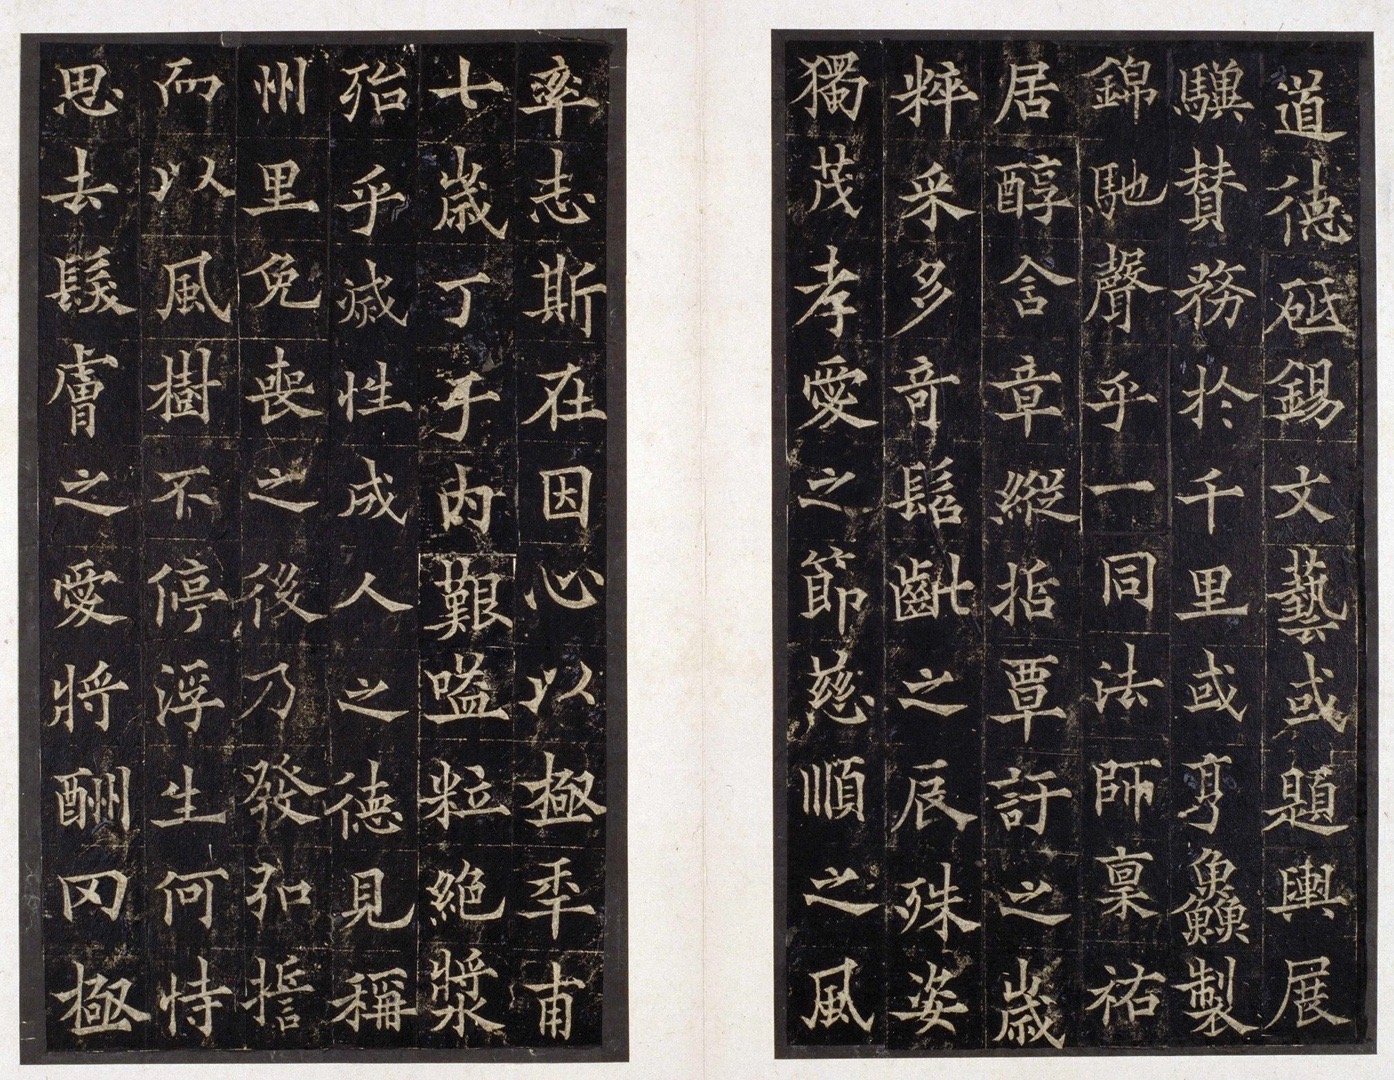 道德砥錫文藝或題輿展
驥贊務於千里或亨鱻製
錦馳聲乎一同法師稟祐
居醇含章縱哲覃訏之歲
粹采多奇髫齓之辰殊姿
獨茂孝愛之節慈順之風
率志斯在因心以極年甫
七歲丁于內艱嗌粒絕漿
殆乎滅性成人之德見稱
州里免喪之後乃發弘誓
而以風樹不停浮生何恃
思去髮膚之愛將酬罔極